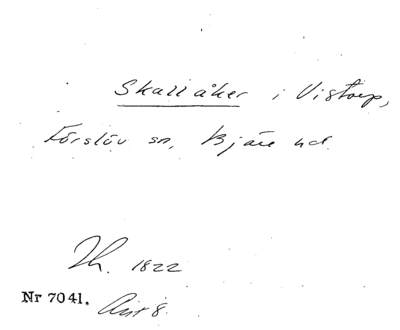 Skallåker i Vistorp,
Förslöv sn, Bjäre hd
Jh. 1822
Nr 7041. Akt 8.